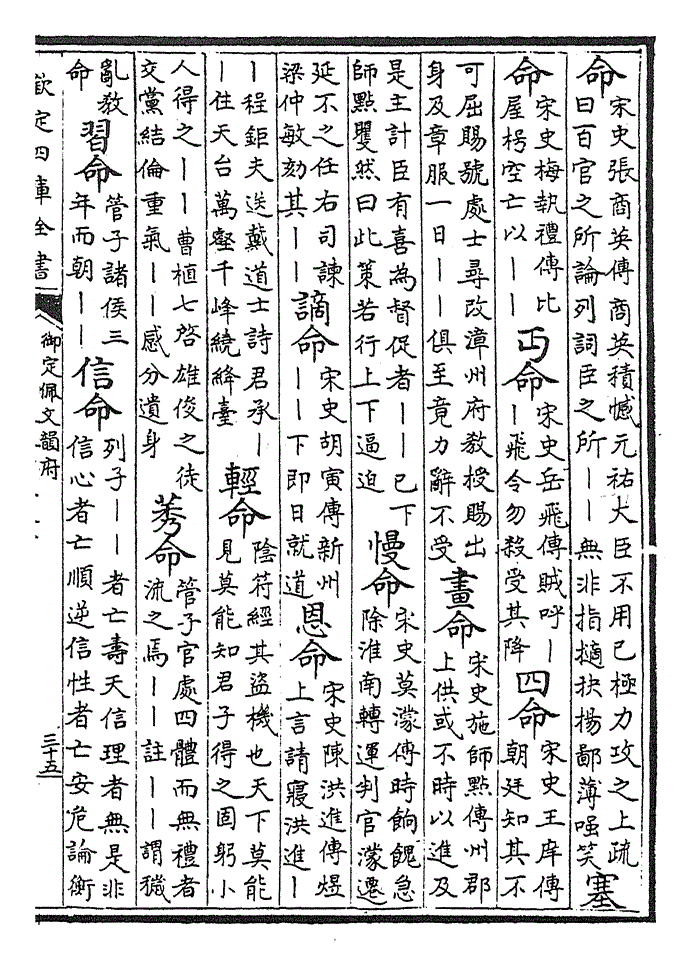 命宋史張商英傳商英積憾元祐大臣不用已極力攻之上疏
曰百官之所論列詞臣之所丨丨無非指擿抉揚鄙薄嗤笑塞
命宋史梅執禮傳比
屋枵空亡以丨丨丐命宋史岳飛傳賊呼丨
丨飛令勿殺受其降四命宋史王庠傳
朝廷知其不
可屈賜號處士尋改漳州府教授賜出
身及章服一日丨丨俱至竟力辭不受畫命宋史施師點傳州郡
上供或不時以進及
是主計臣有喜為督促者丨丨已下
師點矍然曰此策若行上下逼迫慢命宋史莫濛傳時餉餽急
除淮南轉運判官濛遷
延不之任右司諫
梁仲敏劾其丨丨謫命宋史胡寅傳新州
丨丨下即日就道恩命宋史陳洪進傳煜
上言請寢洪進丨
丨程鉅夫送戴道士詩君承丨
丨住天台萬壑千峰繞絳臺輕命陰符經其盜機也天下莫能
見莫能知君子得之固躬小
人得之丨丨曹植七啓雄俊之徒
交黨結倫重氣丨丨感分遺身莠命管子官處四體而無禮者
流之焉丨丨註丨丨謂穢
亂教
命習命管子諸侯三
年而朝丨丨信命列子丨丨者亡壽夭信理者無是非
信心者亡順逆信性者亡安危論衡
欽定四庫全書
御定佩文韻府
三十五